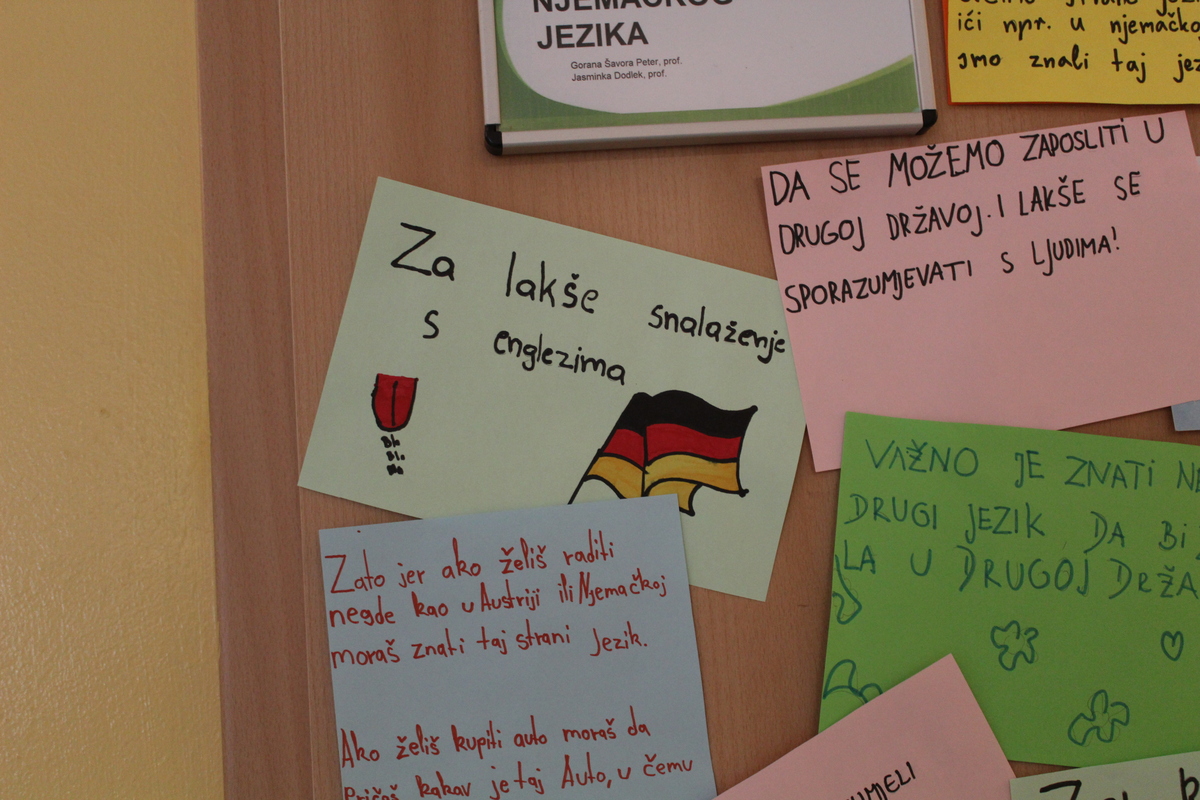 NJEMAČKOG
JEZIKA
Gorana Šavora Peter, prof.
Jasminka Dodlek, prof.
ići npr. u njemačko
smo znali taj jez
DA SE MOŽEMO ZAPOSLITI U
DRUGOJ DRŽAVOJ. I LAKŠE SE
SPORAZUMJEVATI S LJUDIMA!
Za lakše snalaženje
s englezima
Bla
Bla
VAŽNO JE ZNATI NE
DRUGI JEZIK DA BI
LA U DRUGOJ DRŽA
Zato jer ako želiš raditi
negde kao u Austriji ili Njemačkoj
moraš znati taj strani Jezik.
Ako želiš kupiti auto moraš da
pričaš kakav je taj Auto, u čemu
UMJELI